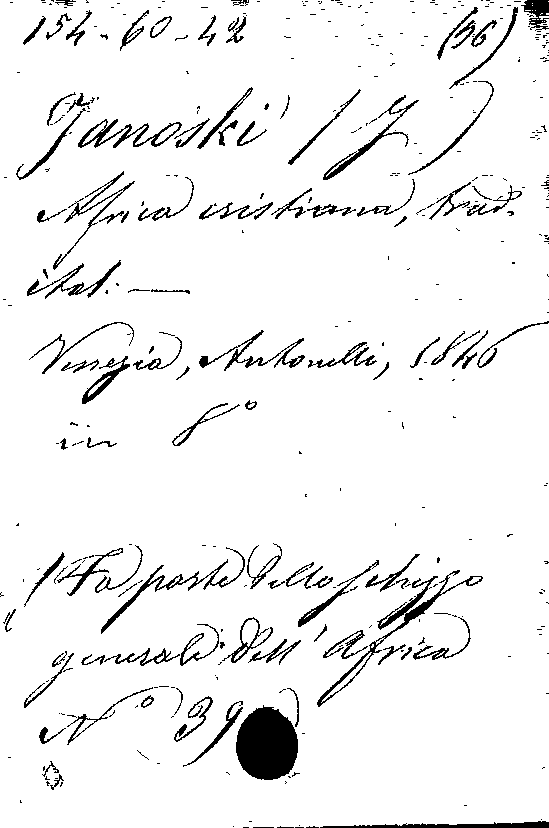 154-60-42 (36)
Janoski (J)
Africa cristiana, trad.
ital: —
Venezia, Antonelli, 1846
in 8°
(Fa parte dello schizzo
generale dell' Africa
N° 39